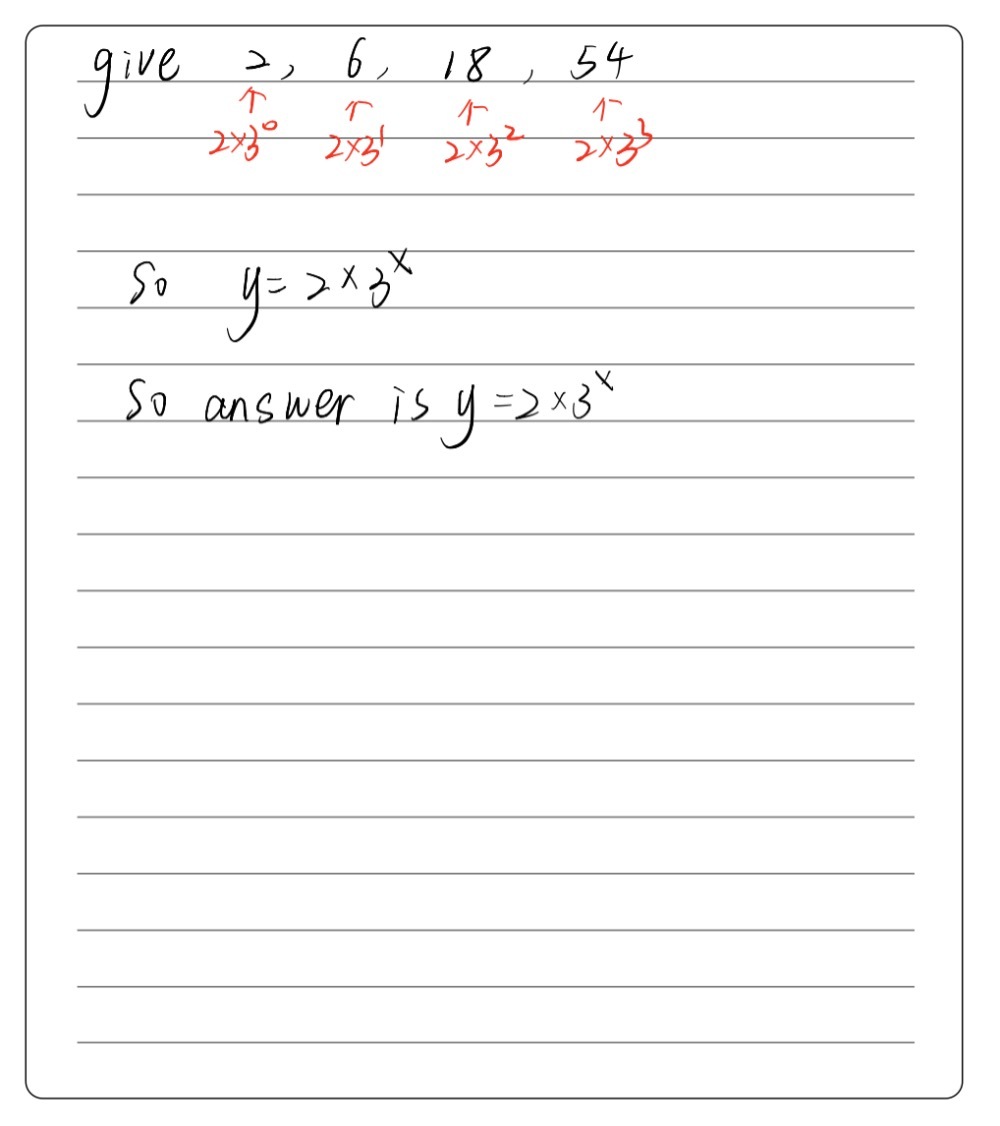 give 2, 6, 18, 54
↑ ↑ ↑ ↑
2×3⁰ 2×3¹ 2×3² 2×3³
So y=2×3ˣ
So answer is y=2×3ˣ